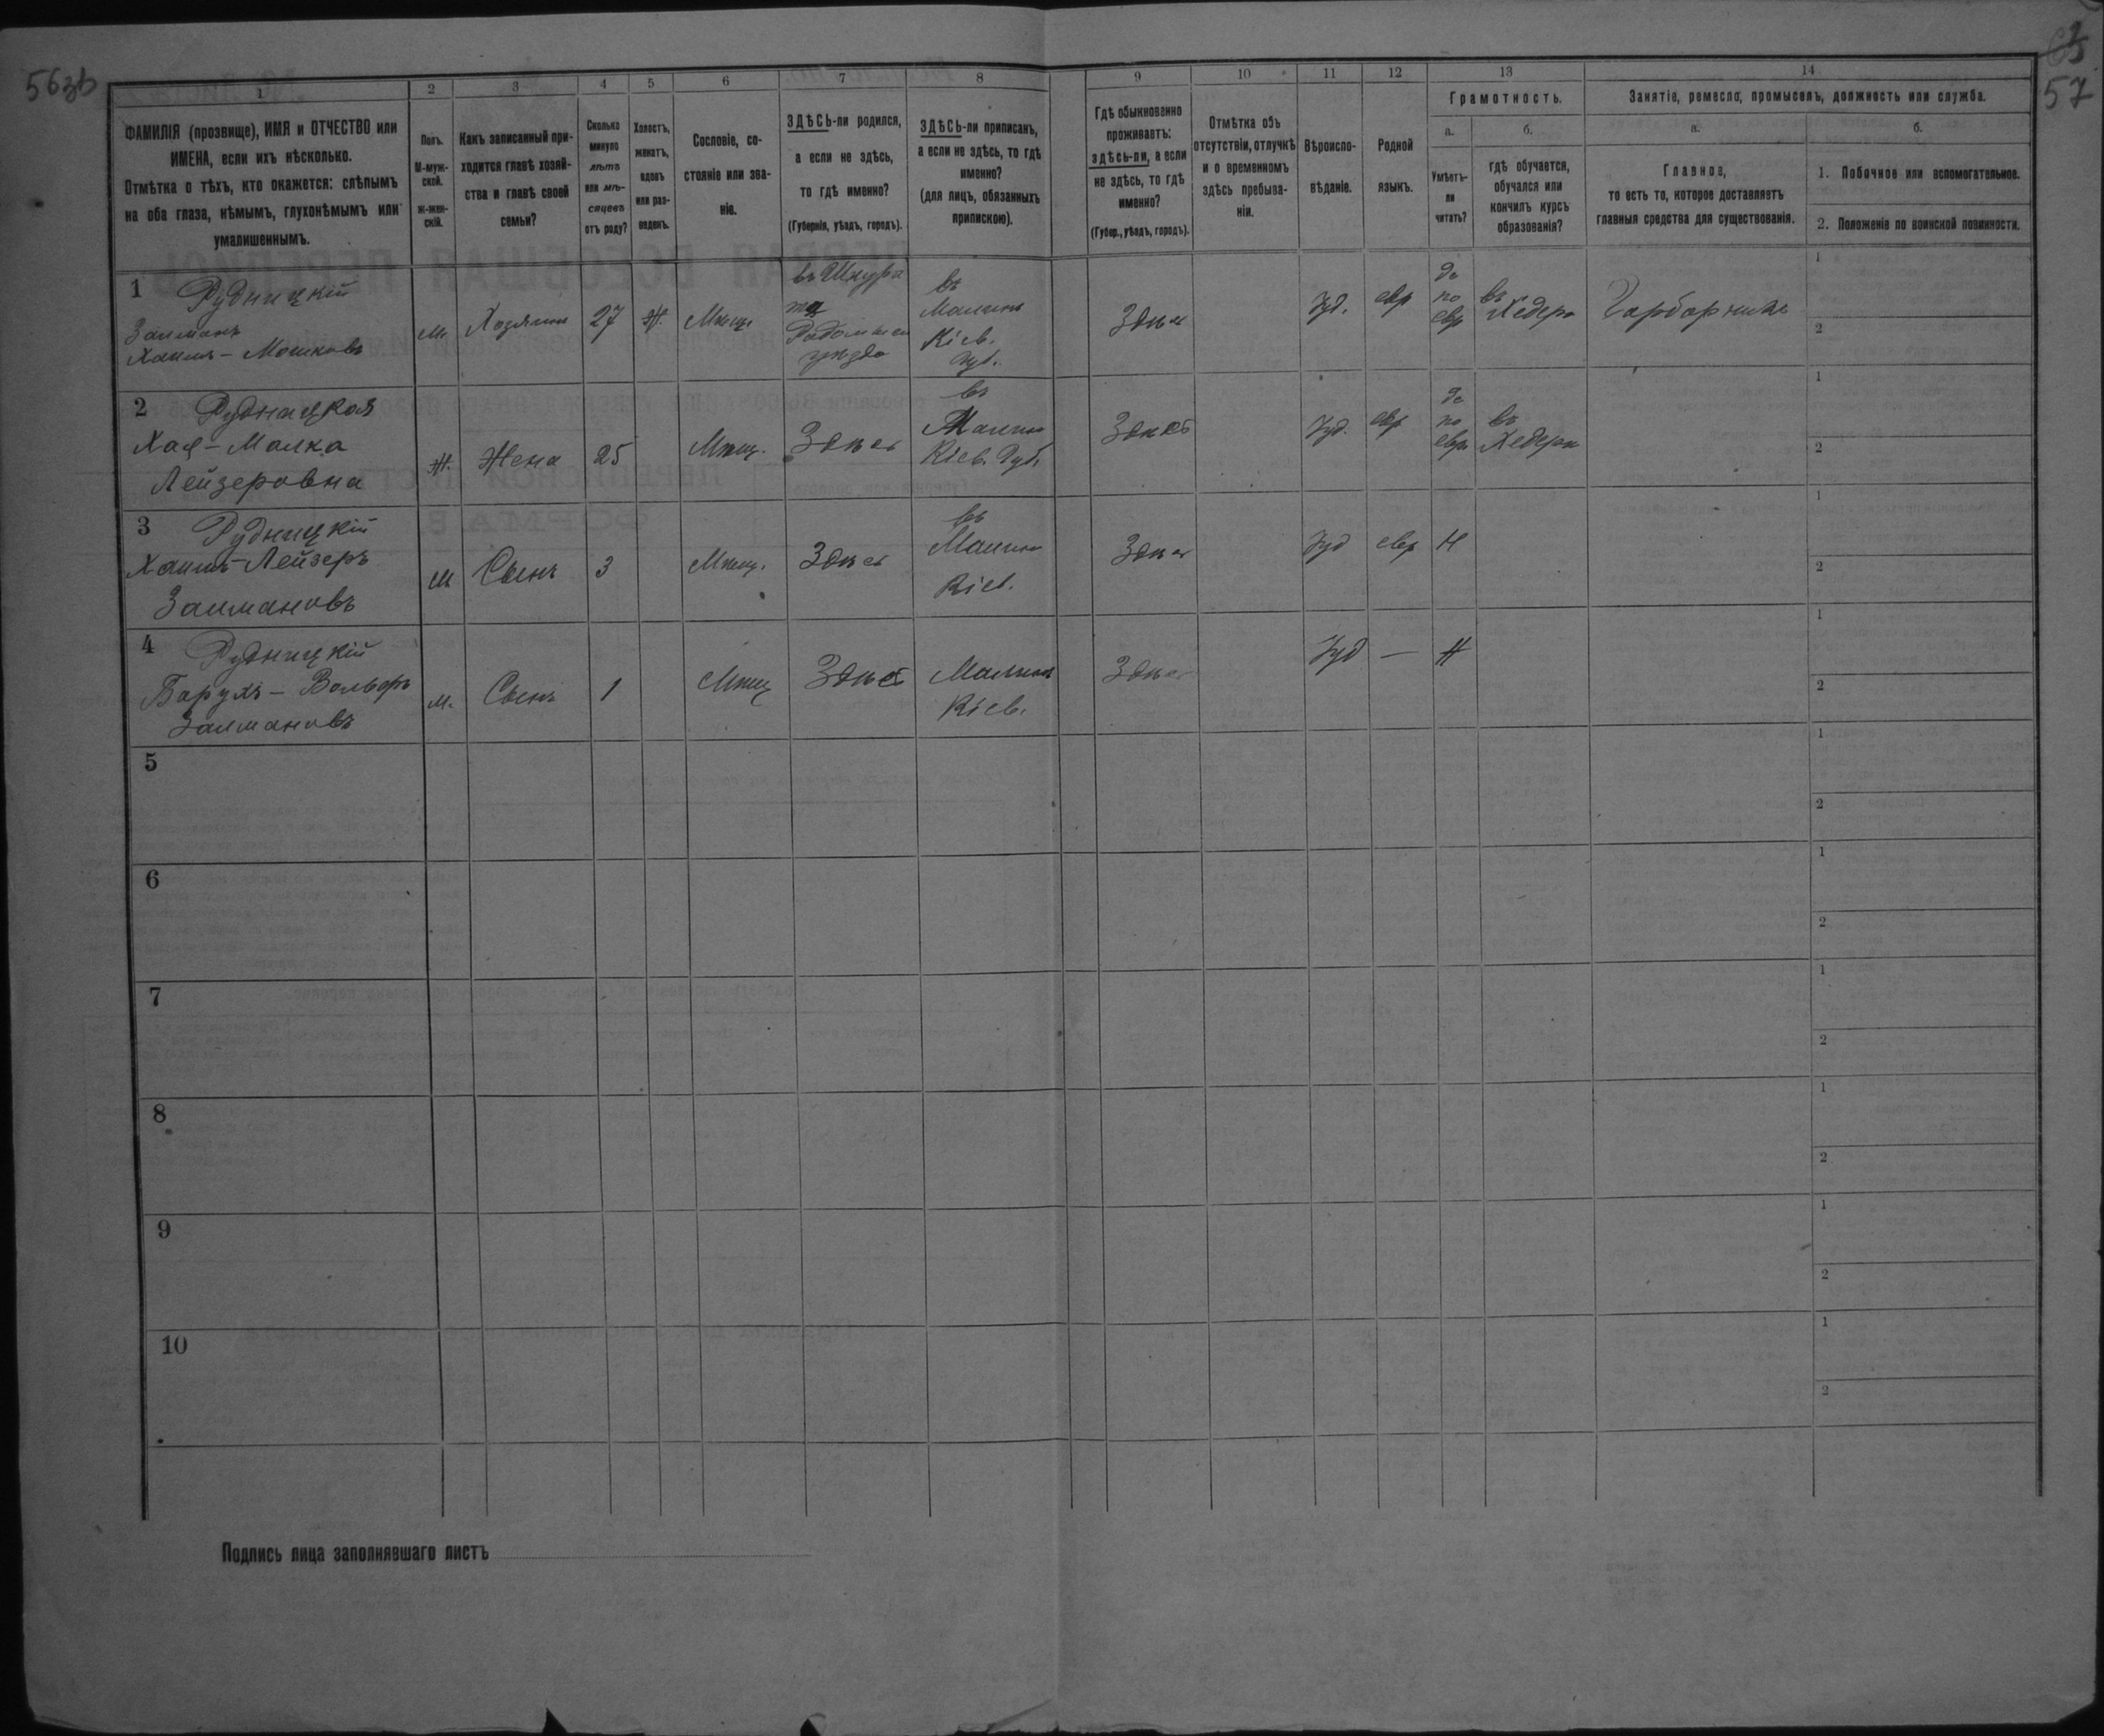 56зв
57
1
2
3
4
5
6
7
8
9
10
11
12
13
14
ФАМИЛІЯ (прозвище), ИМЯ и ОТЧЕСТВО или
ИМЕНА, если ихъ нѣсколько.
Отмѣтка о тѣхъ, кто окажется: слѣпымъ
на оба глаза, нѣмымъ, глухонѣмымъ или
умалишеннымъ.
Полъ.
М-муж-
ской.
ж-жен-
скій.
Какъ записанный при-
ходится главѣ хозяй-
ства и главѣ своей
семьи?
Сколько
минуло
лѣтъ
или мѣ-
сяцевъ
отъ роду?
Холостъ,
женатъ,
вдовъ
или раз-
веденъ.
Сословіе, со-
стояніе или зва-
ніе.
ЗДѢСЬ-ли родился,
а если не здѣсь,
то гдѣ именно?
(Губернія, уѣздъ, городъ).
ЗДѢСЬ-ли приписанъ,
а если не здѣсь, то гдѣ
именно?
(для лицъ, обязанныхъ
припискою).
Гдѣ обыкновенно
проживаетъ:
здѣсь-ли, а если
не здѣсь, то гдѣ
именно?
(Губер., уѣздъ, городъ).
Отмѣтка объ
отсутствіи, отлучкѣ
и о временномъ
здѣсь пребыва-
ніи.
Вѣроиспо-
вѣданіе.
Родной
языкъ.
Грамотность.
а.
Умѣетъ-
ли
читать?
б.
гдѣ обучается,
обучался или
кончилъ курсъ
образованія?
Занятіе, ремесло, промыселъ, должность или служба.
а.
Главное,
то есть то, которое доставляетъ
главныя средства для существованія.
б.
1. Побочное или вспомогательное.
2. Положеніе по воинской повинности.
1
Рудницкій
Залманъ
Хаимъ-Мошковъ
м.
Хозяинъ
27
ж.
Мѣщ.
въ
Радомысл
уѣзда
въ
Малинъ
Кіев.
Губ.
Здѣсь
Іуд.
евр
да
по
евр
въ
Хедерѣ
1
2
2
Рудницкая
Хая-Малка
Лейзеровна
ж.
Жена
25
Мѣщ.
Здѣсь
въ
Малинъ
Кіев. Губ.
Здѣсь
Іуд.
евр
да
по
евр
въ
Хедерѣ
1
2
3
Рудницкій
Хаимъ-Лейзеръ
Залмановъ
м
Сынъ
3
Мѣщ.
Здѣсь
въ
Малинъ
Кіев.
Здѣсь
Іуд
евр
Н
1
2
4
Рудницкій
Барухъ-Вольфъ
Залмановъ
м.
Сынъ
1
Мѣщ
Здѣсь
Малинъ
Кіев.
Здѣсь
Іуд
—
Н
1
2
5
1
2
6
1
2
7
1
2
8
1
2
9
1
2
10
1
2
Подпись лица заполнявшаго листъ